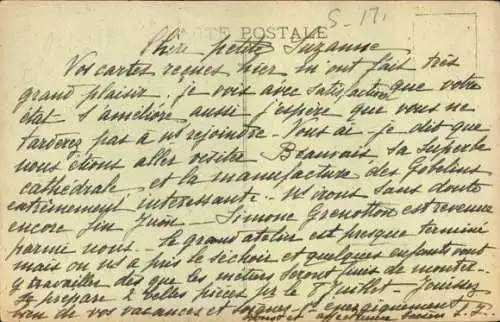 S-17.
CARTE POSTALE
Chère petite Suzanne
Vos cartes reçues hier m'ont fait très
grand plaisir. je vois avec satisfaction que votre
état s'améliore aussi j'espère que vous ne
tarderez pas à n/ rejoindre. Vous ai-je dit que
nous étions aller visiter Beauvais, sa superbe
cathédrale et la manufacture des Gobelins
extrêmement intéressante.. n/s irons sans doute
encore fin Juin. Simone Grenotton est revenue
parmi nous. Le grand atelier est presque terminé
mais on n/s a pris le séchoir et quelques enfants vont
y travailler dès que les métiers seront finis de monter..
prépare 2 belles pièces pr le 7 Juillet. Jouissez
bien de vos vacances et soignez-v/s énergiquement
et affectueux L. F.